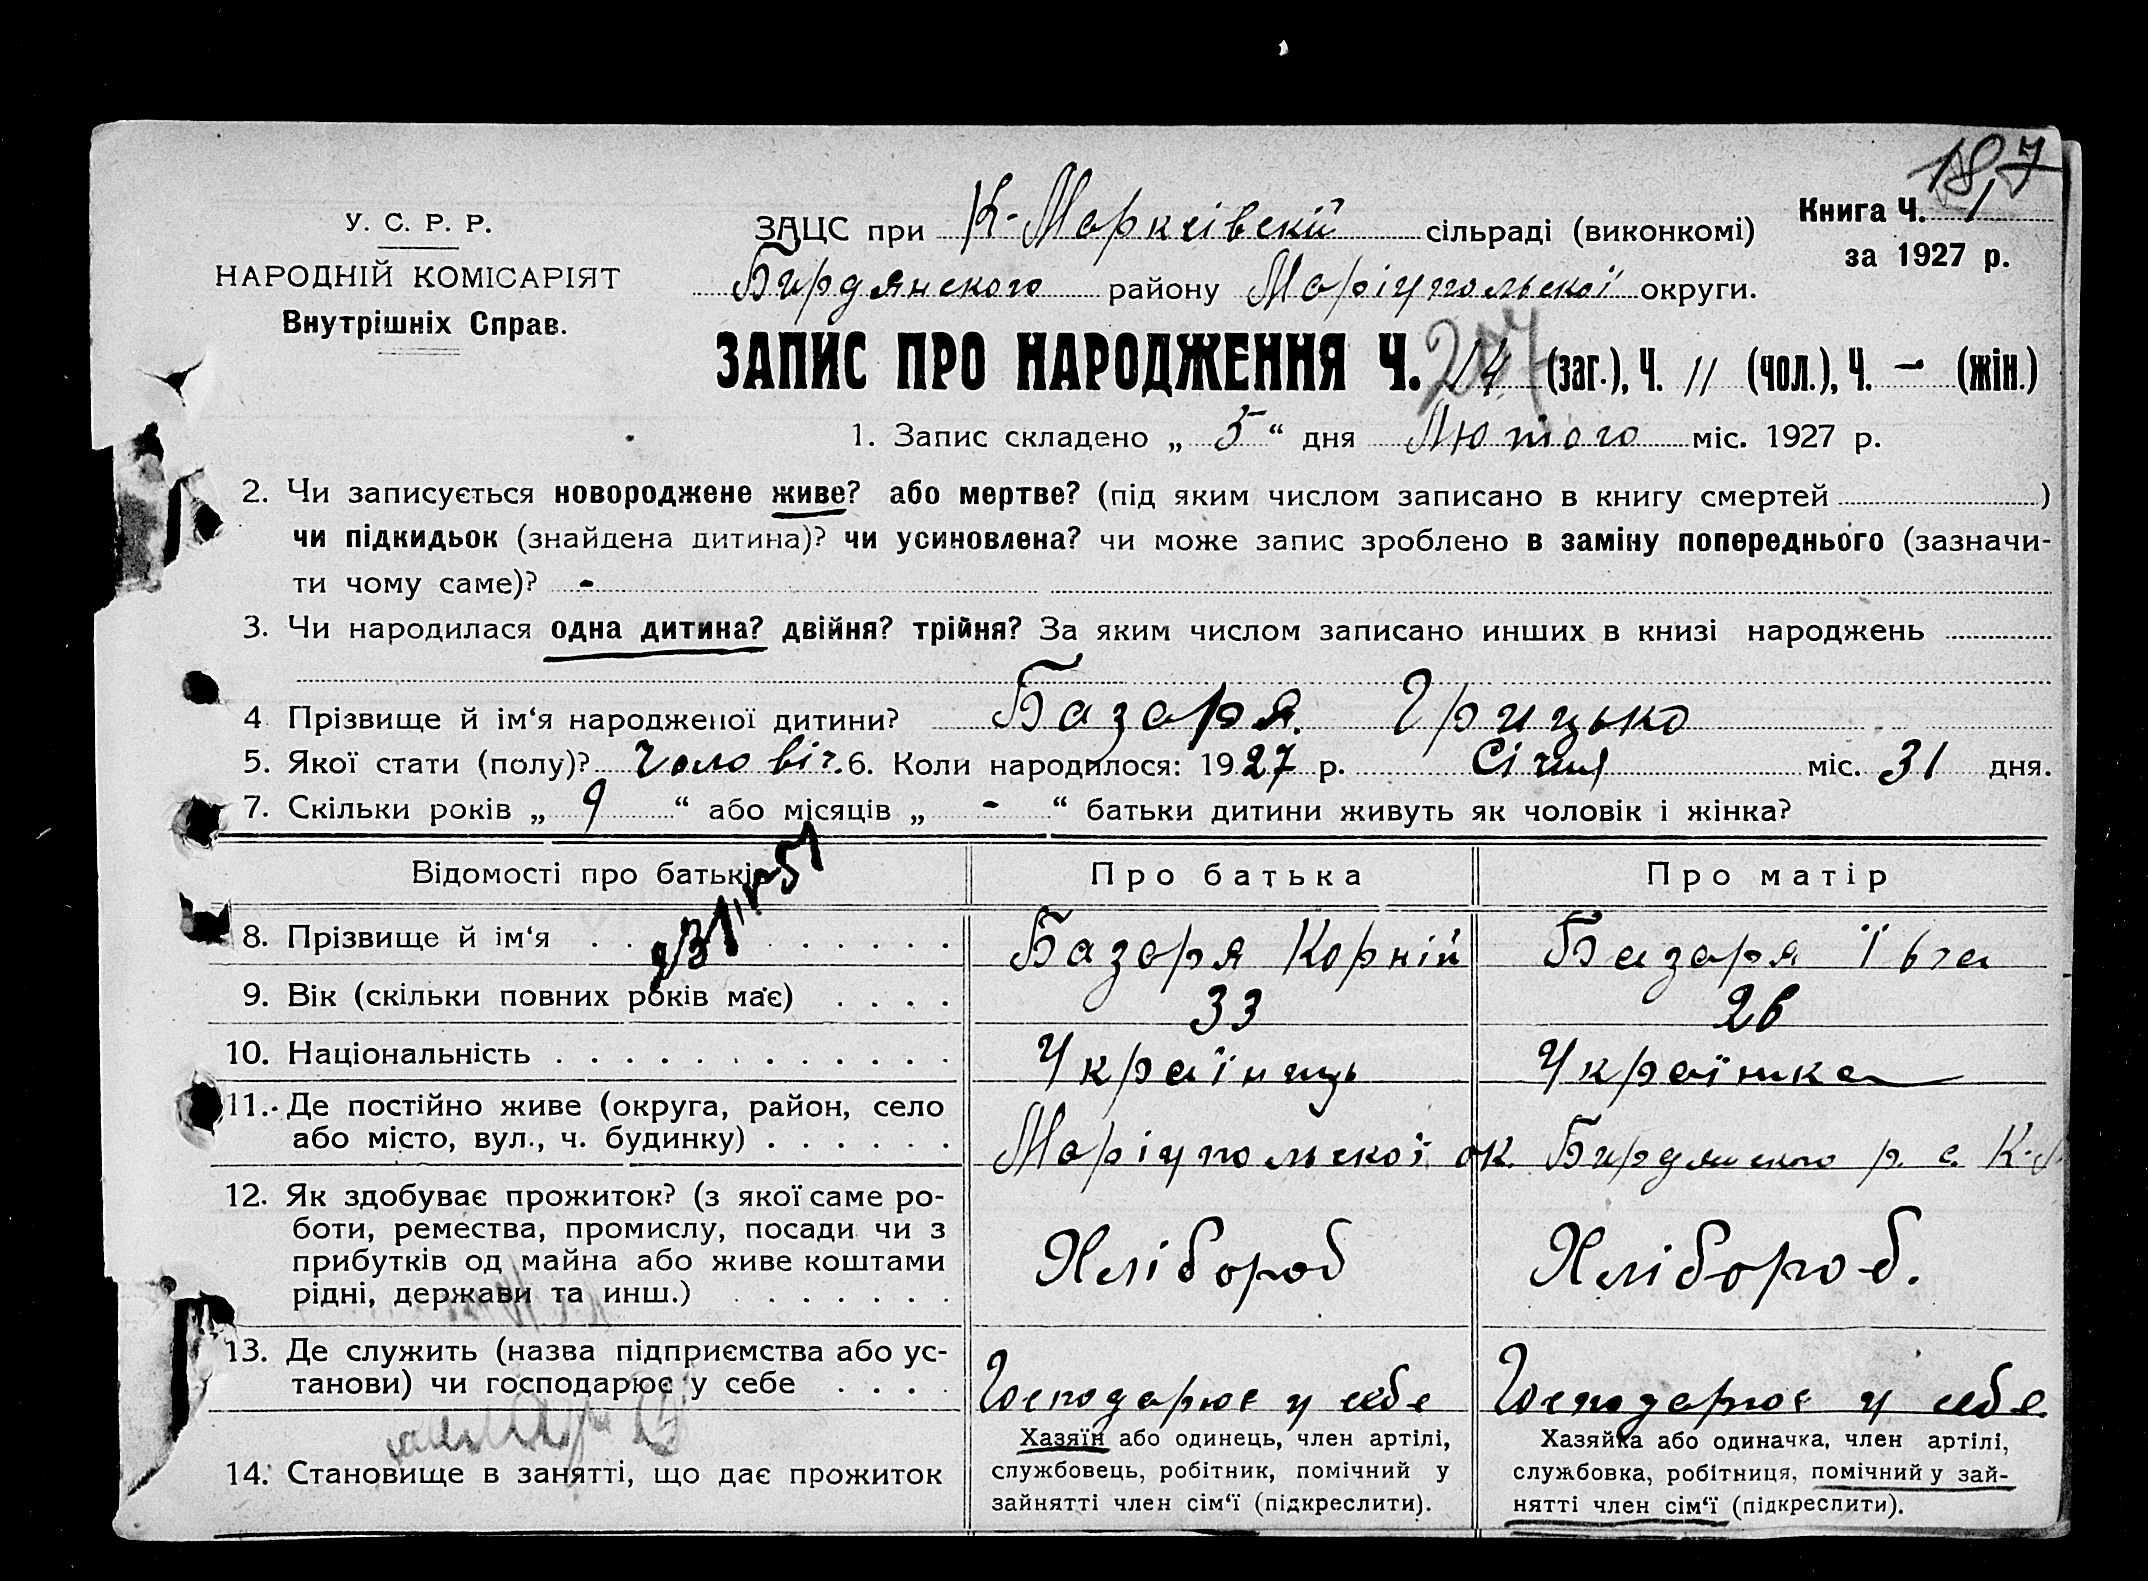 187
У. С. Р. Р.
НАРОДНІЙ КОМІСАРІЯТ
Внутрішніх Справ.
ЗАЦС при К-Марксівскій сільраді (виконкомі)
Книга Ч. 1
за 1927 р.
Бирдянского району Маріупольскої округи.
ЗАПИС ПРО НАРОДЖЕННЯ Ч. 14 (заг.), Ч. 11 (чол.), Ч. – (жін.)
1. Запис складено „ 5 “ дня Лютого міс. 1927 р.
2. Чи записується новороджене живе? або мертве? (під яким числом записано в книгу смертей )
чи підкидьок (знайдена дитина)? чи усиновлена? чи може запис зроблено в заміну попереднього (зазначи-
ти чому саме)? -
3. Чи народилася одна дитина? двійня? трійня? За яким числом записано инших в книзі народжень
4 Прізвище й ім‘я народженої дитини? Базаря. Грицько
5. Якої стати (полу)? Чоловіч. 6. Коли народилося: 1927 р. Січня міс. 31 дня.
7. Скільки років „ 9 “ або місяців „ - “ батьки дитини живуть як чоловік і жінка?
Відомості про батьків Про батька Про матір
8. Прізвище й ім‘я Базаря Корній Базаря Ївга
9. Вік (скільки повних років має) 33 26
10. Національність Українець Українка
11. Де постійно живе (округа, район, село
або місто, вул., ч. будинку) Маріупольскої ок. Бирдянского р. с. К-М
12. Як здобуває прожиток? (з якої саме ро-
боти, ремества, промислу, посади чи з
прибутків од майна або живе коштами
рідні, держави та инш.)
Хлібороб Хлібороб.
13. Де служить (назва підприємства або ус-
танови) чи господарює у себе
Господарює у себе Господарює у себе
14. Становище в занятті, що дає прожиток
Хазяїн або одинець, член артілі,
службовець, робітник, помічний у
зайнятті член сім‘ї (підкреслити).
Хазяйка або одиначка, член артілі,
службовка, робітниця, помічний у зай-
нятті член сім‘ї (підкреслити).